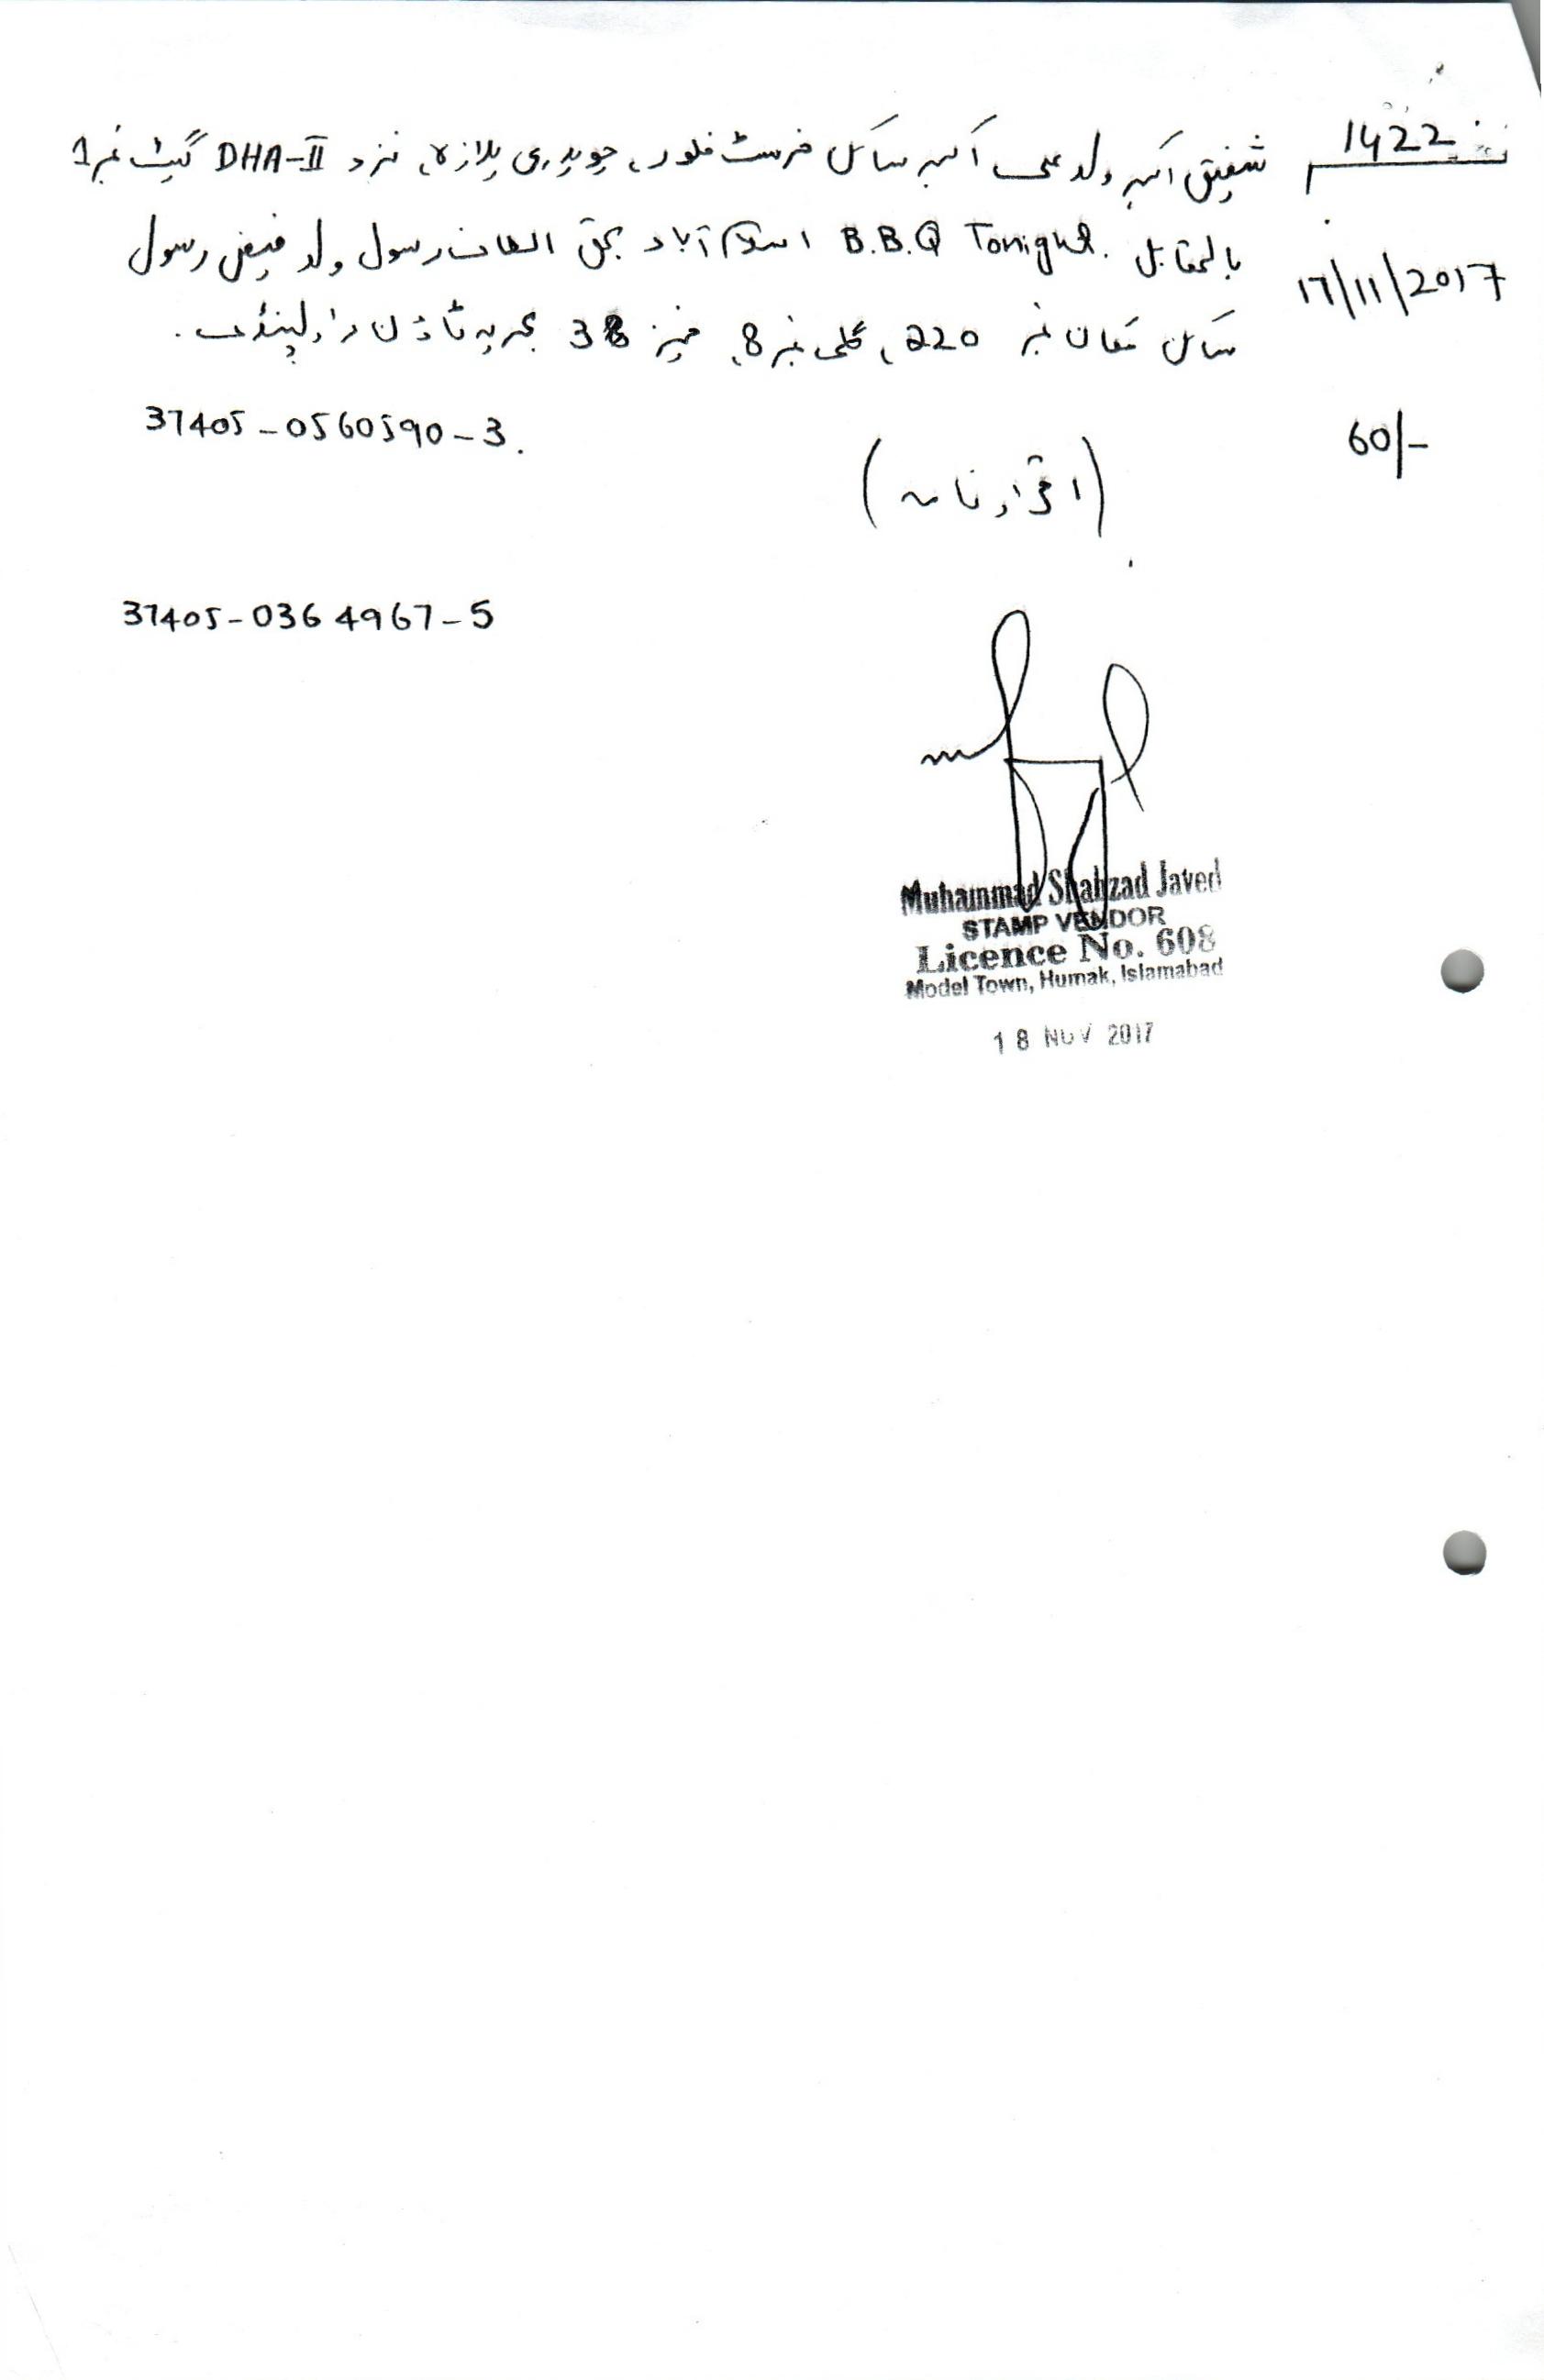 1422
شفیق اکبر ولد علی اکبر ساکن فرسٹ فلور، چوہدری پلازہ، نزد DHA-II گیٹ نمبر 1
17/11/2017
بالمقابل B.B.Q Tonight. اسلام آباد بحق الطاف رسول ولد فیض رسول
ساکن مکان نمبر 220، گلی نمبر 8، فیز 38 بحریہ ٹاؤن راولپنڈی.
37405-0560590-3.
60/-
(اقرار نامہ)
37405-0364967-5
Muhammad Shahzad Javed
STAMP VENDOR
Licence No. 608
Model Town, Humak, Islamabad
18 NOV 2017